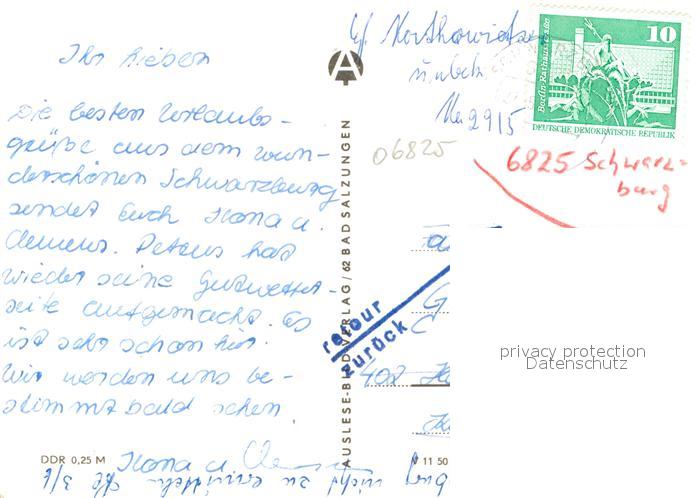 Ihr Lieben
Die besten Urlaubs-
grüße aus dem wun-
derschönen Schwarzburg
sendet Euch Ilona u.
Clemens. Petrus hat
wieder seine Gutwetter-
seite aufgemacht. Es
ist sehr schön hier.
Wir werden uns be-
stimmt bald sehen
Ilona u
DDR 0,25 M
AUSLESE-BILD-VERLAG / 62 BAD SALZUNGEN
V 11 50
unbek
2915
06825
10
Berlin-Rathausstraße
DEUTSCHE DEMOKRATISCHE REPUBLIK
6825 Schwarz-
burg
retour
zurück
nicht zu ermitteln
privacy protection
Datenschutz